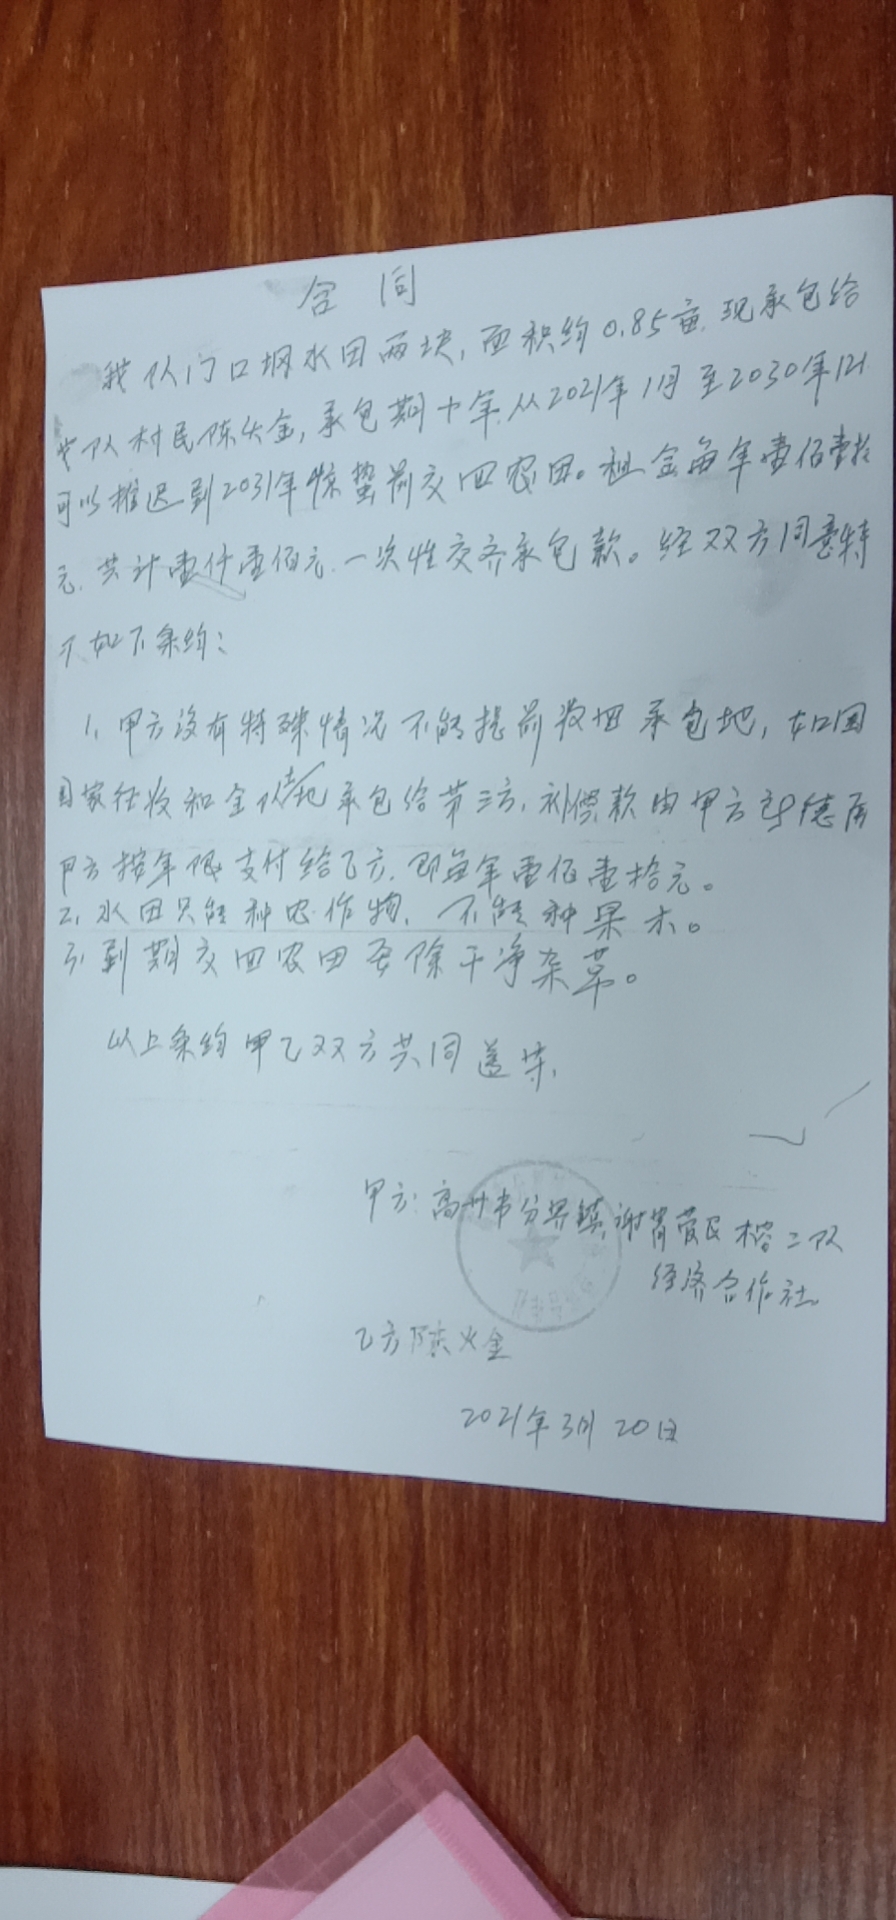 合同
我队门口垌水田两块，面积约0.85亩，现承包给
队村民陈火金，承包期十年，从2021年1月至2030年12月
可以推迟到2031年惊蛰前交回农田。租金每年壹佰壹拾
元，共计壹仟壹佰元，一次性交齐承包款。经双方同意特
如下条约：
1、甲方没有特殊情况不能提前收回承包地，如国
国家征收和全队土地承包给第三方，补偿款由甲方所
甲方按年限支付给乙方，即每年壹佰壹拾元。
2、水田只能种农作物，不能种果木。
3、到期交回农田要除干净杂草。
以上条约甲乙双方共同遵守，
甲方：高州市分界镇谢民二队
经济合作社
乙方陈火金
2021年3月20日